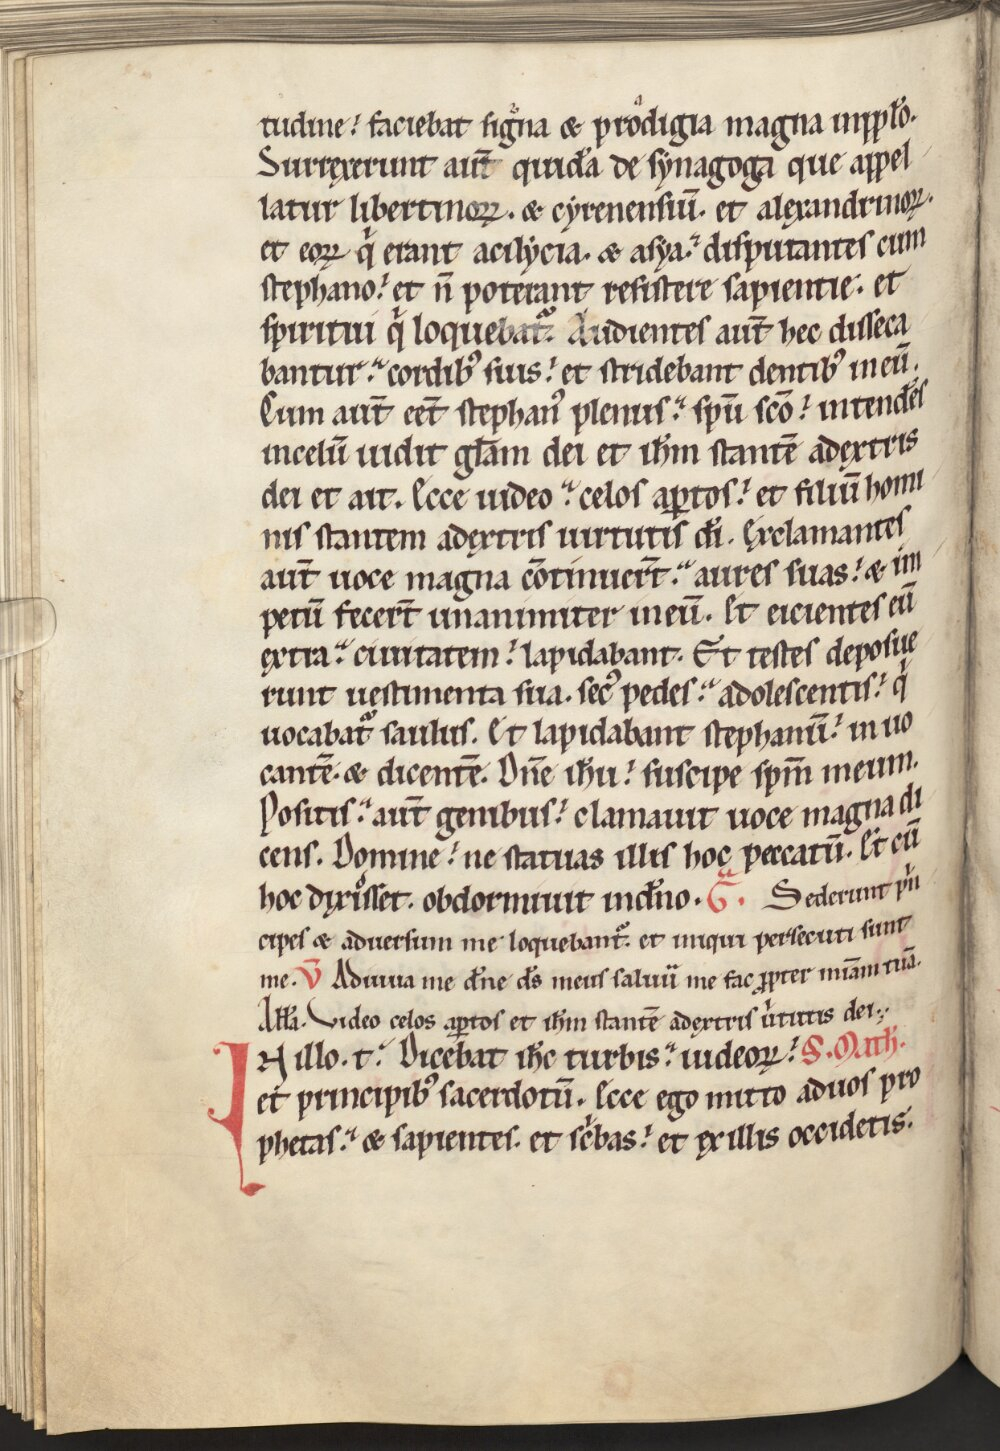 tudine! faciebat sig̃na & prodigia magna inp̱plo.
Surrexerunt aut̄ quida de synagoga que appel
latur libertinoꝝ. & cyrenensiū. et alexandrinoꝝ.
et eoꝝ q̇ erant acilycia. & asya. disputantes cum
stephano! et n̄ poterant resistere sapientie. et
spiritui q̇ loquebat᷑. Audientes aut̄ hec disseca
bantur. cordibꝰ suis! et stridebant dentibꝰ ineū.
Cum aut̄ eēt stephanꝰ plenus. spū scō! intendēs
incelū uidit glām dei et ihm stantē adextris
dei et ait. Ecce uideo celos aꝑtos! et filiū homi
nis stantem adextris uirtutis di. Exclamantes
aut̄ uoce magna cōtinuert̄. aures suas! & im
petū fecert̄ unanimiter ineū. Et eicientes eū
extra. ciuitatem! lapidabant. Et testes deposue
runt uestimenta sua. secꝰ pedes. adolescentis! q̇
uocabat᷑ saulus. Et lapidabant stephanū! inuo
cantē. & dicentē. Dn̄e ihu! suscipe spm̄ meum.
Positis. aut̄ genibus! clamauit uoce magna di
cens. Domine! ne statuas illis hoc peccatū. Et cū
hoc dixisset. obdormiuit indn̄o. G̃. Sederunt prin
cipes & aduersum me loquebant᷑. et iniqui persecuti sunt
me. V̄ Adiuua me dn̄e ds̄ meus saluū me fac ꝓpter miām tuā.
Alła. Video celos aꝑtos et ihm stantē adextris u̇tutis dei.
IN illo. t. Dicebat ihc turbis. iudeoꝝ! S. Math.
et principibꝰ sacerdotū. Ecce ego mitto aduos pro
phetas. & sapientes. et sċbas! et exillis occidetis.